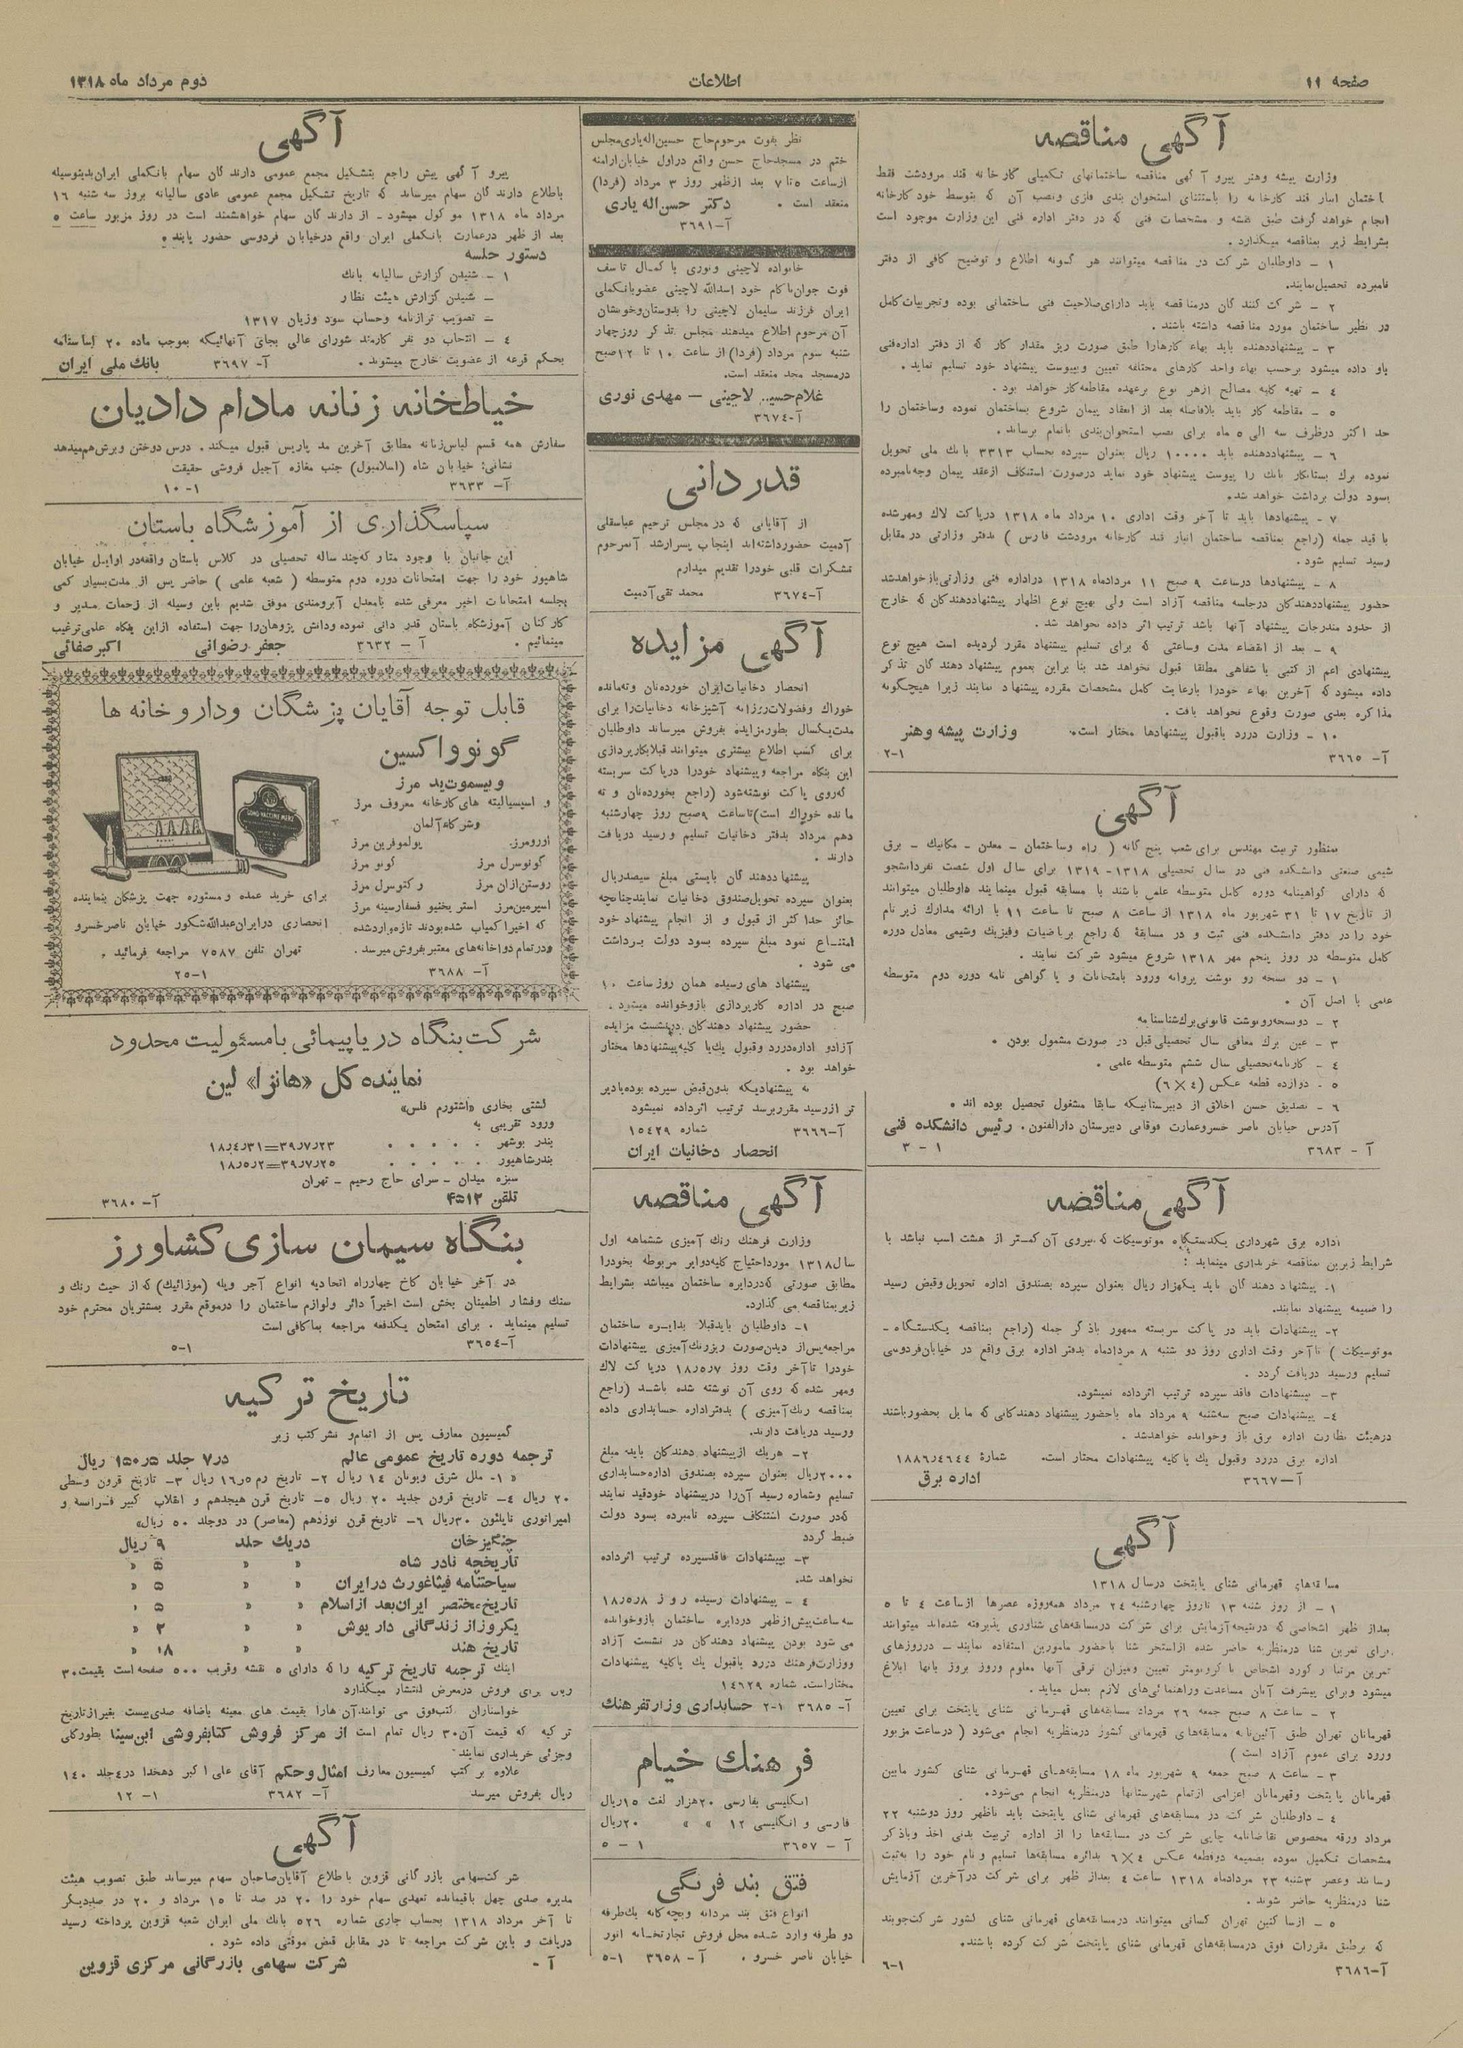 صفحه ۱۱
اطلاعات
دوم مرداد ماه ۱۳۱۸
آگهی مناقصه
وزارت پیشه وهنر پیرو آگهی مناقصه ساختمانهای تکمیلی کارخانه قند مرودشت فقط
ساختمان انبار قند کارخانه را باستثنای استخوان بندی فلزی ونصب آن که بتوسط خود کارخانه
انجام خواهد گرفت طبق نقشه و مشخصات فنی که در دفتر اداره فنی این وزارت موجود است
بشرایط زیر بمناقصه میگذارد.
۱ – داوطلبان شرکت در مناقصه میتوانند هر گونه اطلاع و توضیح کافی از دفتر
نامبرده تحصیل نمایند.
۲ – شرکت کنند گان درمناقصه باید دارای صلاحیت فنی ساختمانی بوده وتجربیات کامل
در نظیر ساختمان مورد مناقصه داشته باشند.
۳ – پیشنهاددهنده باید بهاء کارهارا طبق صورت ریز مقدار کار که از دفتر اداره فنی
باو داده میشود برحسب بهاء واحد کارهای مختلفه تعیین وبپیوست پیشنهاد خود تسلیم نماید.
٤ – تهیه کلیه مصالح ازهر نوع برعهده مقاطعه کار خواهد بود.
۵ – مقاطعه کار باید بلافاصله بعد از انعقاد پیمان شروع بساختمان نموده وساختمان را
حد اکثر درظرف سه الی ۵ ماه برای نصب استخوان‌بندی باتمام برساند.
۶ – پیشنهاددهنده باید ۱۰۰۰۰ ریال بعنوان سپرده بحساب ۳۳۱۳ بانك ملی تحویل
نموده برك بستانکار بانك را پیوست پیشنهاد خود نماید درصورت استنکاف ازعقد پیمان وجه‌نامبرده
بسود دولت برداشت خواهد شد.
۷ – پیشنهادها باید تا آخر وقت اداری ۱۰ مرداد ماه ۱۳۱۸ درپاکت لاك ومهرشده
با قید جمله (راجع بمناقصه ساختمان انبار قند کارخانه مرودشت فارس) بدفتر وزارتی در مقابل
رسید تسلیم شود.
۸ – پیشنهادها درساعت ۹ صبح ۱۱ مردادماه ۱۳۱۸ دراداره فنی وزارتی باز خواهد شد
حضور پیشنهاددهندگان درجلسه مناقصه آزاد است ولی بهیچ نوع اظهار پیشنهاددهندگان که خارج
از حدود مندرجات پیشنهاد آنها باشد ترتیب اثر داده نخواهد شد.
۹ – بعد از انقضاء مدت وساعتی که برای تسلیم پیشنهاد مقرر گردیده است هیچ نوع
پیشنهادی اعم از کتبی یا شفاهی مطلقا قبول نخواهد شد بنا براین بعموم پیشنهاد دهند گان تذکر
داده میشود که آخرین بهاء خودرا بارعایت کامل مشخصات مقرره پیشنهاد نمایند زیرا هیچگونه
مذاکره بعدی صورت وقوع نخواهد یافت.
۱۰ – وزارت دررد یاقبول پیشنهادها مختار است. وزارت پیشه وهنر
آ– ۳۶۶۵ ۲–۱
آگهی
بمنظور تربیت مهندس برای شعب پنج گانه (راه وساختمان – معدن – مکانیك – برق
شیمی صنعتی دانشکده فنی در سال تحصیلی ۱۳۱۸–۱۳۱۹ برای سال اول شصت نفردانشجو
که دارای گواهینامه دوره کامل متوسطه علمی باشند با مسابقه قبول مینمایند داوطلبان میتوانند
از تاریخ ۱۷ تا ۳۱ شهریور ماه ۱۳۱۸ از ساعت ۸ صبح تا ساعت ۱۱ با ارائه مدارك زیر نام
خود را در دفتر دانشکده فنی ثبت و در مسابقهٔ که راجع بریاضیات وفیزیك وشیمی معادل دوره
کامل متوسطه در روز پنجم مهر ۱۳۱۸ شروع میشود شرکت نمایند.
۱ – دو نسخه رو نوشت پروانه ورود بامتحانات و یا گواهی نامه دوره دوم متوسطه
علمی با اصل آن.
۲ – دونسخه‌رونوشت قانونی برك شناسنامه
۳ – عین برك معافی سال تحصیلی قبل در صورت مشمول بودن.
٤ – کارنامه تحصیلی سال ششم متوسطه علمی.
۵ – دوازده قطعه عکس (۴×۶)
۶ – تصدیق حسن اخلاق از دبیرستانیکه سابقا مشغول تحصیل بوده اند.
آدرس خیابان ناصر خسروعمارت فوقانی دبیرستان دارالفنون. رئیس دانشکده فنی
آ – ۳۶۸۳ ۱ – ۳
آگهی مناقضه
اداره برق شهرداری یکدستگاه موتوسیکلت که نیروی آن کمتر از هشت اسب نباشد با
شرایط زیرین بمناقصه خریداری مینماید:
۱– پیشنهاد دهند گان باید یکهزار ریال بعنوان سپرده بصندوق اداره تحویل وقبض رسید
را ضمیمه پیشنهاد نمایند.
۲– پیشنهادات باید در پاکت سربسته ممهور باذکر جمله (راجع بمناقصه یکدستگاه –
موتوسیکلت) تا آخر وقت اداری روز دو شنبه ۸ مردادماه بدفتر اداره برق واقع در خیابان فردوسی
تسلیم ورسید دریافت گردد.
۳– بپیشنهادات فاقد سپرده ترتیب اثرداده نمیشود.
٤– پیشنهادات صبح سه‌شنبه ۹ مرداد ماه باحضور پیشنهاد دهندگانی که مایل بحضورباشند
درهیئت نظارت اداره برق باز وخوانده خواهدشد.
اداره برق دررد وقبول یك یاکلیه پیشنهادات مختار است. شمارهٔ ۱۸۸۶٫۴۶۴۴
آ–۳۶۶۷ اداره برق
آگهی
مسابقه‌های قهرمانی شنای پایتخت درسال ۱۳۱۸
۱ – از روز شنبه ۱۳ تاروز چهارشنبه ۲۴ مرداد همه‌روزه عصرها ازساعت ۴ تا ۵
بعداز ظهر اشخاصی که درنتیجه آزمایش برای شرکت درمسابقه‌های شناوری پذیرفته شده‌اند میتوانند
برای تمرین شنا درمنظریه حاضر شده ازاستخر شنا باحضور مامورین استفاده نمایند – درروزهای
تمرین مرتبا رکورد اشخاص با کرونومتر تعیین ومیزان ترقی آنها معلوم وروز بروز بانها ابلاغ
میشود وبرای پیشرفت آنان مساعدت وراهنمائی‌های لازم بعمل میاید.
۲ – ساعت ۸ صبح جمعه ۲۶ مرداد مسابقه‌های قهرمانی شنای پایتخت برای تعیین
قهرمانان تهران طبق آئین‌نامه مسابقه‌های قهرمانی کشور درمنظریه انجام می‌شود (درساعت مزبور
ورود برای عموم آزاد است)
۳ – ساعت ۸ صبح جمعه ۹ شهریور ماه ۱۸ مسابقه‌های قهرمانی شنای کشور مابین
قهرمانان پایتخت وقهرمانان اعزامی ازتمام شهرستانها درمنظریه انجام می‌شود.
٤ – داوطلبان شرکت در مسابقه‌های قهرمانی شنای پایتخت باید تاظهر روز دوشنبه ۲۲
مرداد ورقه مخصوص تقاضانامه چاپی شرکت در مسابقه‌ها را از اداره تربیت بدنی اخذ وباذکر
مشخصات تکمیل نموده بضمیمه دوقطعه عکس ۴×۶ بدائره مسابقه‌ها تسلیم و نام خود را به‌ثبت
رسانند وعصر ۳شنبه ۲۳ مردادماه ۱۳۱۸ ساعت ۴ بعداز ظهر برای شرکت درآخرین آزمایش
شنا درمنظریه حاضر شوند.
۵ – ازساکنین تهران کسانی میتوانند درمسابقه‌های قهرمانی شنای کشور شرکت‌جویند
که برطبق مقررات فوق درمسابقه‌های قهرمانی شنای پایتخت شرکت کرده باشند.
آ–۳۶۸۶ ۶–۱
نظر بفوت مرحوم حاج حسین اله‌یاری مجلس
ختم در مسجد حاج حسن واقع دراول خیابان ارامنه
ازساعت ۵ تا ۷ بعد ازظهر روز ۳ مرداد (فردا)
منعقد است. دکتر حسن اله یاری
آ–۳۶۹۱
خانواده لاچینی ونوری با کمال تاسف
فوت جوان ناکام خود اسدالله لاچینی عضو بانکملی
ایران فرزند سلیمان لاچینی را بدوستان وخویشان
آن مرحوم اطلاع میدهند مجلس تذکر روز چهار
شنبه سوم مرداد (فردا) از ساعت ۱۰ تا ۱۲ صبح
درمسجد مجد منعقد است.
غلامحسین لاچینی – مهدی نوری
آ–۳۶۷۴
قدردانی
از آقایانی که در مجلس ترحیم عباسقلی
آدمیت حضورداشته‌اند اینجانب پسرارشد آنمرحوم
تشکرات قلبی خودرا تقدیم میدارم
آ–۳۶۷۴ محمد تقی آدمیت
آگهی مزایده
انحصار دخانیات ایران خورده‌نان وته‌مانده
خوراك وفضولات روزانه آشپزخانه دخانیات را برای
مدت یکسال بطور مزایده بفروش میرساند داوطلبان
برای کسب اطلاع بیشتری میتوانند قبلا بکارپردازی
این بنگاه مراجعه وپیشنهاد خودرا درپاکت سربسته
که‌روی پاکت نوشته‌شود (راجع بخورده‌نان و ته
مانده خوراك است) تاساعت ۹ صبح روز چهارشنبه
دهم مرداد بدفتر دخانیات تسلیم و رسید دریافت
دارند.
پیشنهاددهند گان بایستی مبلغ سیصدریال
بعنوان سپرده تحویل صندوق دخانیات نمایند چنانچه
حائز حداکثر از قبول و از انجام پیشنهاد خود
امتناع نمود مبلغ سپرده بسود دولت برداشت
می شود.
پیشنهاد های رسیده همان روز ساعت ۱۰
صبح در اداره کارپردازی باز وخوانده میشود.
حضور پیشنهاد دهندگان درنشست مزایده
آزاد و اداره دررد وقبول یك یا کلیه پیشنهادها مختار
خواهد بود.
به پیشنهادیکه بدون قبض سپرده بوده یا دیر
تر ازرسید مقرربرسد ترتیب اثرداده نمیشود
آ–۳۶۶۶ شماره ۱۵۴۲۹
انحصار دخانیات ایران
آگهی مناقصه
وزارت فرهنك رنك آمیزی ششماهه اول
سال ۱۳۱۸ مورداحتیاج کلیه‌دوایر مربوطه بخودرا
مطابق صورتی که دردایره ساختمان میباشد بشرایط
زیر بمناقصه می گذارد.
۱– داوطلبان باید قبلا بدایره ساختمان
مراجعه پس‌از دیدن صورت ریز رنك‌آمیزی پیشنهادات
خودرا تا آخر وقت روز ۱۸٫۵٫۷ درپاکت لاك
ومهر شده که روی آن نوشته شده باشد (راجع
بمناقصه رنك آمیزی) بدفتر اداره حسابداری داده
ورسید دریافت دارند.
۲– هریك ازپیشنهاد دهندکان بایدمبلغ
۲۰۰۰ریال بعنوان سپرده بصندوق اداره حسابداری
تسلیم وشماره رسید آن‌را درپیشنهاد خودقید نمایند
که‌در صورت استنکاف سپرده نامبرده بسود دولت
ضبط گردد
۳– بپیشنهادات فاقد سپرده ترتیب اثرداده
نخواهد شد.
٤ – پیشنهادات رسیده روز ۱۸٫۵٫۸
سه ساعت پیش ازظهر دردایره ساختمان بازوخوانده
می شود بودن پیشنهاد دهندکان در نشست آزاد
ووزارت فرهنك دررد یاقبول یك یاکلیه پیشنهادات
مختار است. شماره ۱۴۶۲۹
آ– ۳۶۸۵ ۲–۱ حسابداری وزارتفرهنك
فرهنك خیام
انگلیسی بفارسی ۲۰هزار لغت ۱۵ریال
فارسی و انگلیسی ۱۲ » » ۲۰ریال
آ – ۳۶۵۷ ۱ – ۵
فتق بند فرنگی
انواع فتق بند مردانه وبچه‌گانه یك‌طرفه
دو طرفه وارد شده محل فروش تجارتخانه انور
خیابان ناصر خسرو. آ– ۳۶۵۸ ۱–۵
آگهی
پیرو آگهی پیش راجع بتشکیل مجمع عمومی دارند گان سهام بانکملی ایران بدینوسیله
باطلاع دارند گان سهام میرساند که تاریخ تشکیل مجمع عمومی عادی سالیانه بروز سه شنبه ۱۶
مرداد ماه ۱۳۱۸ موکول میشود – از دارند گان سهام خواهشمند است در روز مزبور ساعت ۵
بعد از ظهر درعمارت بانکملی ایران واقع درخیابان فردوسی حضور یابند.
دستور جلسه
۱ – شنیدن گزارش سالیانه بانك
– شنیدن گزارش هیئت نظار
– تصویب ترازنامه وحساب سود وزیان ۱۳۱۷
٤ – انتخاب دو نفر کارمند شورای عالی بجای آنهائیکه بموجب ماده ۲۰ اساسنامه
بحکم قرعه از عضویت خارج میشوند. آ– ۳۶۹۷ بانك ملی ایران
خیاطخانه زنانه مادام دادیان
سفارش همه قسم لباس زنانه مطابق آخرین مد پاریس قبول میکند. درس دوختن وبرش هم‌میدهد
نشانی: خیابان شاه (اسلامبول) جنب مغازه آجیل فروشی حقیقت
آ– ۳۶۳۳ ۱–۱۰
سپاسگذاری از آموزشگاه باستان
این جانبان با وجود متارکه چند ساله تحصیلی در کلاس باستان واقعه‌در اوایل خیابان
شاهپور خود را جهت امتحانات دوره دوم متوسطه (شعبه علمی) حاضر پس از مدت‌بسیار کمی
بجلسه امتحانات اخیر معرفی شده بامعدل آبرومندی موفق شدیم باین وسیله از زحمات مدیر و
کارکنان آموزشگاه باستان قدر دانی نموده ودانش پژوهان‌را جهت استفاده ازاین بنگاه علمی‌ترغیب
مینمائیم. آ – ۳۶۳۲ جعفر رضوانی اکبر صفائی
قابل توجه آقایان پزشگان وداروخانه ها
گونوواکسین
وبیسموت‌ید مرز
و اسپسیالیته های کارخانه معروف مرز
وشرکاء آلمان
اورومرز. یولموفرین مرز
گونوسرل مرز گونو مرز
روستن‌ازان مرز رکتوسرل مرز
اسپرمین‌مرز استر یخنیو فسفارسینه مرز
که اخیرا کمیاب شده‌بودند تازه‌واردشده
ودرتمام دواخانه‌های معتبر بفروش میرسد.
آ– ۳۶۸۸
GONO-VACCINE MERZ
برای خرید عمده ومستوره جهت پزشکان بنماینده
انحصاری درایران عبدالله شکور خیابان ناصرخسرو
تهران تلفن ۷۵۸۷ مراجعه فرمائید.
۱–۲۵
شرکت بنگاه دریاپیمائی بامسئولیت محدود
نماینده کل «هانزا» لین
کشتی بخاری «اشتورم فلس»
ورود تقریبی به
بندر بوشهر ۳۹٫۷٫۲۳=۱۸٫۴٫۳۱
بندرشاهپور ۳۹٫۷٫۲۵=۱۸٫۵٫۲
سبزه میدان – سرای حاج رحیم – تهران
تلفن ۴۵۱۲ آ– ۳۶۸۰
بنگاه سیمان سازی کشاورز
در آخر خیابان کاخ چهارراه اتحادیه انواع آجر وپله (موزائیك) که از حیث رنك و
سنك وفشار اطمینان بخش است اخیراً دائر ولوازم ساختمان را درموقع مقرر بمشتریان محترم خود
تسلیم مینماید. برای امتحان یکدفعه مراجعه بماکافی است
آ–۳۶۵۴ ۱–۵
تاریخ ترکیه
کمیسیون معارف پس از اتمام و نشر کتب زیر
ترجمه دوره تاریخ عمومی عالم در۷ جلد ۱۵۰٫۵ ریال
« ۱– ملل شرق ویونان ۱۴ ریال ۲– تاریخ رم ۱۶٫۵ ریال ۳– تاریخ قرون وسطی
۲۰ ریال ٤– تاریخ قرون جدید ۲۰ ریال ۵– تاریخ قرن هیجدهم و انقلاب کبیر فرانسه و
امپراتوری ناپلئون ۳۰ریال ۶– تاریخ قرن نوزدهم (معاصر) در دوجلد ۵۰ ریال»
چنگیزخان دریك جلد ۹ ریال
تاریخچه نادر شاه « « ۵ «
سیاحتنامه فیثاغورث درایران « « ۵ «
تاریخ‌مختصر ایران‌بعد ازاسلام « « ۵ «
یکروز از زندگانی داریوش « « ۲ «
تاریخ هند « « ۱۸ «
اینك ترجمه تاریخ ترکیه را که دارای ۵ نقشه وقریب ۵۰۰ صفحه است بقیمت ۳۰
ریال برای فروش درمعرض انتشار میگذارد
خواستاران کتب‌فوق می توانند آن هارا بقیمت های معینه باضافه صدی‌بیست بغیر ازتاریخ
ترکیه که قیمت آن ۳۰ ریال تمام است از مرکز فروش کتابفروشی ابن‌سینا بطورکلی
وجزئی خریداری نمایند
علاوه بر کتب کمیسیون معارف امثال وحکم آقای علی اکبر دهخدا در۴جلد ۱۴۰
ریال بفروش میرسد آ– ۳۶۸۲ ۱– ۱۲
آگهی
شرکت‌سهامی بازر گانی قزوین باطلاع آقایان صاحبان سهام میرساند طبق تصویب هیئت
مدیره صدی چهل باقیمانده تعهدی سهام خود را ۲۰ در صد تا ۱۵ مرداد و ۲۰ در صددیگر
تا آخر مرداد ۱۳۱۸ بحساب جاری شماره ۵۲۶ بانك ملی ایران شعبه قزوین پرداخته رسید
دریافت و باین شرکت مراجعه تا در مقابل قبض موقتی داده شود.
آ – شرکت سهامی بازرگانی مرکزی قزوین